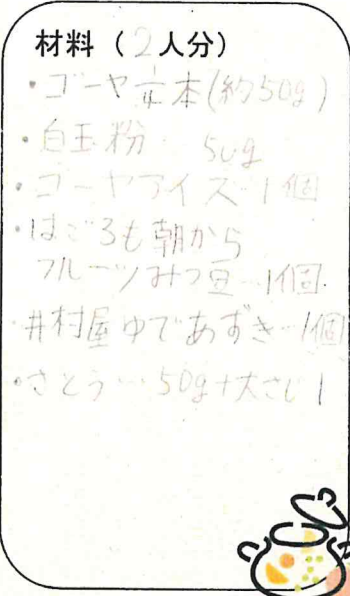 材料(2人分)
・ゴーヤ 1/4本(約50g)
・白玉粉 50g
・ゴーヤアイス…1個
・はごろも朝から
フルーツみつ豆…1個
・井村屋ゆであずき…1個
・さとう…50g+大さじ1